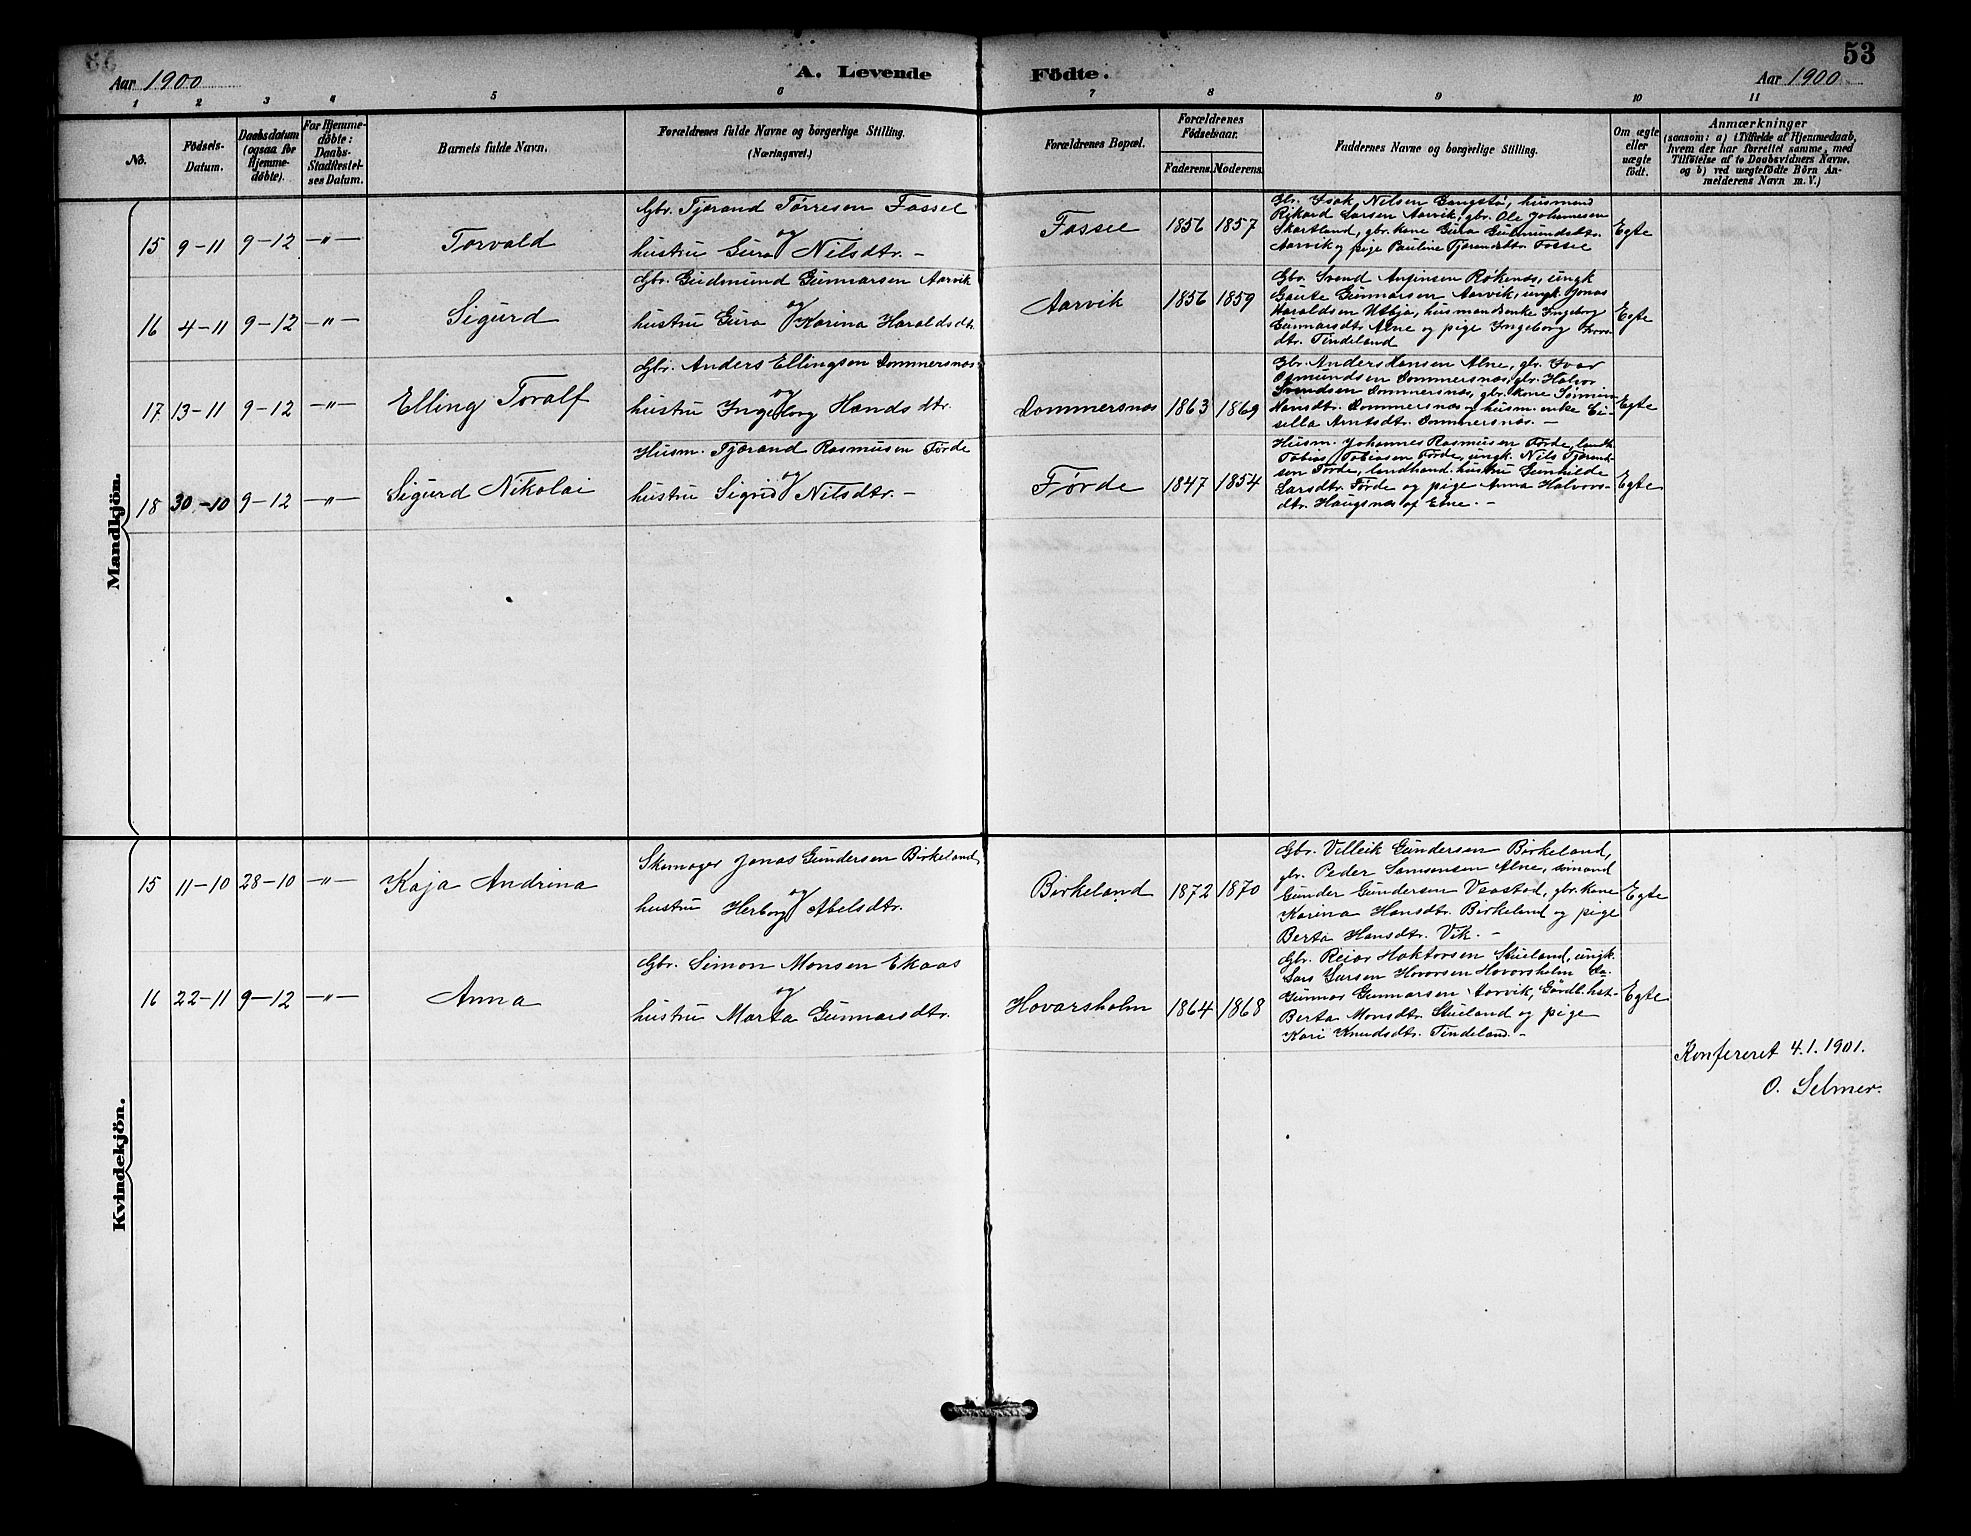 53
Aar 1900
A. Levende
Födte.
Aar 1900
1 2 3 4 5 6 7 8 9 10 11
No.
Fødsels-
Datum.
Daabsdatum
(ogsaa for
Hjemme-
døbte).
For Hjemme-
døbte:
Daabs-
Stadfestel-
ses Datum.
Barnets fulde Navn.
Forældrenes fulde Navne og borgerlige Stilling.
(Næringsvei.)
Forældrenes Bopæl.
Forældrenes
Fødselsaar.
Faderens. Moderens.
Faddernes Navne og borgerlige Stilling.
Om ægte
eller
uægte
født.
Anmærkninger
(saasom: a) i Tilfælde af Hjemmedaab,
hvem der har forrettet samme, med
Tilføielse af to Daabsvidners Navne.
og b) ved uægtefødte Børn An-
melderens Navn m. V.)
Mandkjön.
15 9-11 9-12 -"- Torvald
Gbr. Tjerand Tørresen Fosse
og
hustru Guro Nilsdtr. -
Fosse 1856 1857
Gbr. Isak Nilsen Gangstø, husmand
Rikard Larsen Aarvik, gbr. Ole Johannesen
Skartland, gbr. kone Guro Gudmundsdtr.
Aarvik og pige Pauline Tjerandsdtr. Fosse
Egte
16 4-11 9-12 -"- Sigurd
Gbr. Gudmund Gunnarsen Aarvik
og
hustru Guro Karina Haraldsdtr.
Aarvik 1856 1859
Gbr. Svend Røkenes, ungk.
Gaute Gunnarsen Aarvik, ungk. Jonas
Haraldsen Utbjo, husmandsenke Ingeborg
Gunnarsdtr. Alne og pige Ingeborg
dtr. Tindeland
Egte
17 13-11 9-12 -"- Elling Toralf
Gbr. Anders Ellingsen Dommersnæs
og
hustru Ingeborg Hansdtr.
Dommersnæs 1863 1869
Gbr. Anders Hansen Alne, gbr. Ivar
Osmundsen Dommersnæs, gbr. Halvor
Svendsen Dommersnæs, gbr. kone
Hansdtr. Dommersnæs og husm. enke Ci-
sella Arntsdtr. Dommersnæs. -
Egte
18 30-10 9-12 -"- Sigurd Nikolai
Husm. Tjerand Rasmusen Førde
og
hustru Sigrid Nilsdtr. -
Førde 1847 1854
Husm. Johannes Rasmusen Førde, landh.
Tobias Tobiasen Førde, ungk. Nils Tjerand-
sen Førde, landhand. hustru Gunhilde
Larsdtr. Førde og pige Anna Halvors-
dtr. Haugsnes af Etne. -
Egte
Kvindekjön.
15 11-10 28-10 -"- Kaja Andrina
Skomager Jonas Gundersen Birkeland
og
hustru Herborg Abelsdtr.
Birkeland 1872 1870
Gbr. Villeik Gundersen Birkeland,
gbr. Peder Samsonsen Alne, sømand
Gunder Gundersen Vaastod, gbr. kone
Karina Hansdtr. Birkeland og pige
Berta Hansdtr. Vik. -
Egte
16 22-11 9-12 -"- Anna
Gbr. Simon Monsen Ekaas
og
hustru Marta Gunnarsdtr.
Hovarsholm 1864 1868
Gbr. Reiar Haktorsen Stueland, ungk.
Lars Larsen Hovarsholm
Gunnar Gunnarsen Aarvik,
Berta Monsdtr. Stueland og pige
Kari Knudsdtr. Tindeland. -
Egte
Konfereret 4.1.1901.
O. Selmer.